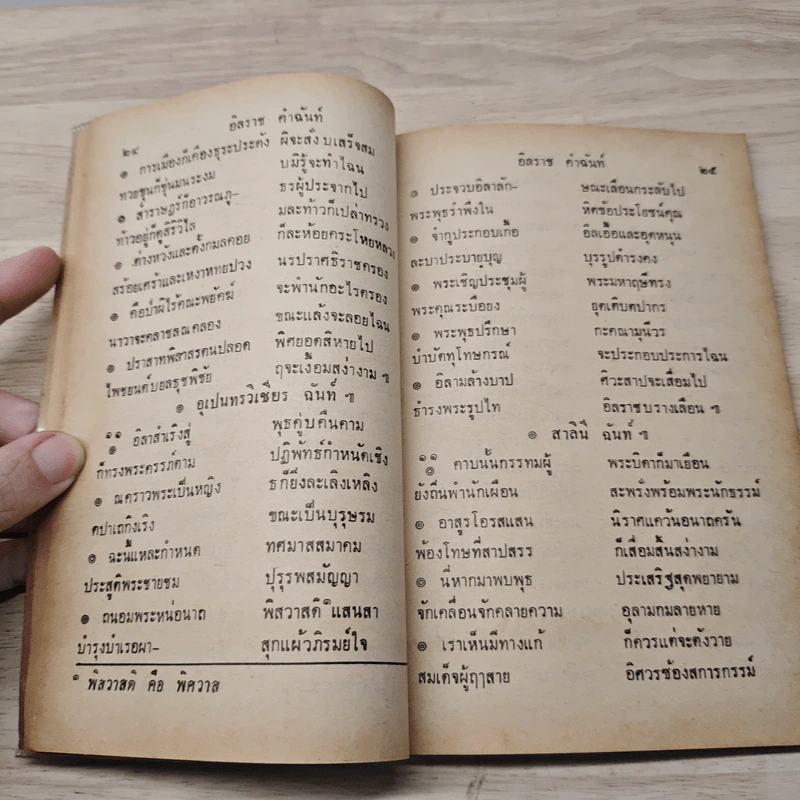 ๒๔
อิลราช คำฉันท์
๏ การเมืองก็เคืองธุระประดัง ผิจะสั่ง บ เสร็จสม
ทวยขุนก็ขุ่นมนระงม บ มิรู้จะทำไฉน
๏ สำราษฎร์ก็อาวรณภู- ธรผู้ประจากไป
ท้าวอยู่ก็ดูสิริวิไล มละท้าวก็เปล่าทรวง
๏ ต่างหวังและตั้งกมลคอย ก็ละห้อยคระโหยหลวง
สร้อยเศร้าและเหงาหทยปวง นรปราศธิราชครอง
๏ คือป่าผิไร้คณะพยัคฆ์ จะพำนักอะไรครอง
นาวาจะคลาชลณคลอง ขณะแล้งจะลอยไฉน
๏ ปราสาทพิลาสรตนปลอด พิศยอดสิหายไป
ไพชยนต์บยลธุชพิชัย ฤจะเงื้อมสง่างาม ฯ
๏ อุเปนทรวิเชียร ฉันท์ ฯ
๑๑ ๏ อิลาสำเริงสู่ พุธคู่บคืนคาม
ก็ทรงพระครรภ์ตาม ปฏิพัทธ์กำหนัดเชิง
๏ ณคราวพระเป็นหญิง ธ ก็ยิ่งละเลิงเหลิง
คปาเถกิงเริง ขณะเป็นบุรุษรม
๏ ฉะนี้แหละกำหนด ทศมาสสมาคม
ประสูติพระชายชม ปุรุรพสมัญญา
๏ ถนอมพระหน่อนาถ พิสวาสดิ๑แสนสา
บำรุงบำเรอผา- สุกแผ้วภิรมย์ใจ
๑ พิสวาสดิ คือ พิศวาส
อิลราช คำฉันท์
๒๕
๏ ประจวบอิลาลัก- ษณะเลือนกระลับไป
พระพุธรำพึงใน หิตข้อประโยชน์คุณ
๏ จำกูประกอบเกื้อ อิลเอื้อและอุดหนุน
ละบาประบายบุญ บุรรูปดำรงคง
๏ พระเชิญประชุมผู้ พระมหาฤษีทรง
พระคุณระบือยง ยุตเดิบดปากร
๏ พระพุธปรึกษา กะคณามุนีวร
บำบัดทุโทษกรณ์ จะประกอบประการไฉน
๏ อิลามล้างบาป ศิวะสาปจะเสื่อมไป
ธำรงพระรูปไท อิลราชบรางเลือน ฯ
๏ สาลินี ฉันท์ ฯ
๑๑ ๏ คาบนั้นกรรทมผู้ พระบิดาก็มาเยือน
ยังถิ่นพำนักเผือน สะพรั่งพร้อมพระนักธรรม์
๏ อาสูรโอรสแสน นิราศแคว้นอนาถครัน
พ้องโทษที่สาปสรร ก็เสื่อมสิ้นสง่างาม
๏ นี่หากมาพบพุธ ประเสริฐสุดพยายาม
จักเคลื่อนจักคลายความ อุลามกมลายหาย
๏ เราเห็นมีทางแก้ ก็ควรแต่จะตั้งวาย
สมเด็จผู้ฤๅสาย อิศวรซ้องสการกรรม์